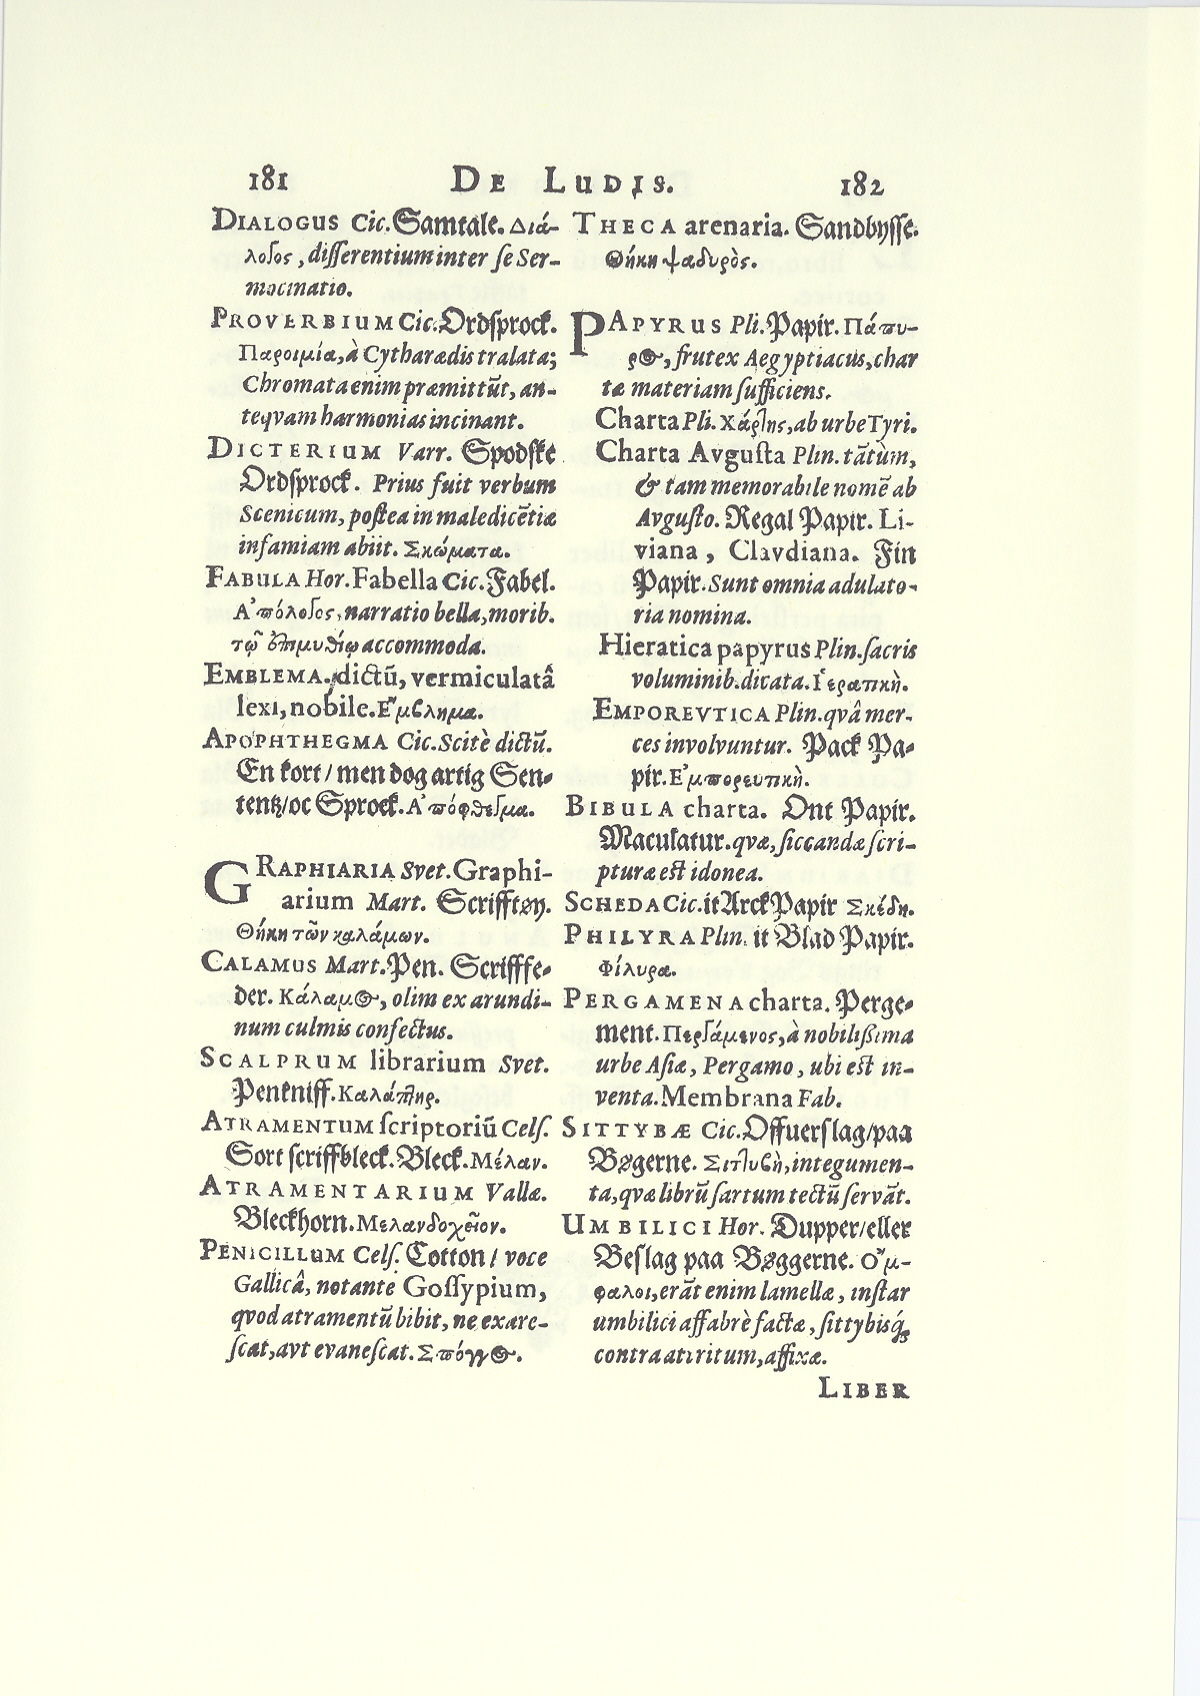 181 DE LUDIS. 182
DIALOGUS Cic. Samtale. Διά-
λογος, differentium inter se Ser-
mocinatio.
PROVERBIUM Cic. Ordsprock.
Παροιμία, à Cytharædis tralata;
Chromata enim præmittũt, an-
teqvam harmonias incinant.
DICTERIUM Varr. Spodske
Ordsprock. Prius fuit verbum
Scenicum, postea in maledicẽtiæ
infamiam abiit. Σκώματα.
FABULA Hor. Fabella Cic. Fabel.
Α᾿πόλογος, narratio bella, morib.
τῷ ἐπιμυθίῳ accommoda.
EMBLEMA. dictũ, vermiculatâ
lexi, nobile. Ε῎μβλημα.
APOPHTHEGMA Cic. Scitè dictũ.
En kort / men dog artig Sen-
tentz / oc Sprock. Α᾿πόφθεγμα.
GRAPHIARIA Svet. Graphi-
arium Mart. Scrifftøy.
Θήκη τῶν καλάμων.
CALAMUS Mart. Pen. Scrifffe-
der. Κάλαμος, olim ex arundi-
num culmis confectus.
SCALPRUM librarium Svet.
Penkniff. Καλάπτης.
ATRAMENTUM scriptoriũ Cels.
Sort scriffbleck. Bleck. Μέλαν.
ATRAMENTARIUM Vallæ.
Bleckhorn. Μελανδοχεῖον.
PENICILLUM Cels. Cotton / voce
Gallicâ, notante Gossypium,
qvod atramentũ bibit, ne exare-
scat, avt evanescat. Σπόγγος.
THECA arenaria. Sandbysse.
Θήκη ψαδυρὸς.
PAPYRUS Pli. Papir. Πάπυ-
ρος, frutex Aegyptiacus, char
tæ materiam sufficiens.
Charta Pli. Χάρτης, ab urbe Tyri.
Charta Avgusta Plin. tãtùm,
& tam memorabile nomẽ ab
Avgusto. Regal Papir. Li-
viana, Clavdiana. Fin
Papir. Sunt omnia adulato-
ria nomina.
Hieratica papyrus Plin. sacris
voluminib. dicata. Ι῾ερατικὴ.
EMPOREVTICA Plin. qvâ mer-
ces involvuntur. Pack Pa-
pir. Ε᾿μπορευτικὴ.
BIBULA charta. Ont Papir.
Maculatur. qvæ, siccandæ scri-
pturæ est idonea.
SCHEDA Cic. it Arck Papir Σκέδη.
PHILYRA Plin. it Blad Papir.
Φίλυρα.
PERGAMENA charta. Perge-
ment. Περγάμενος, à nobilissima
urbe Asiæ, Pergamo, ubi est in-
venta. Membrana Fab.
SITTYBÆ Cic. Offuerslag / paa
Bøgerne. Σιττυβὴ, integumen-
ta, qvæ librũ sartum tectũ servãt.
UMBILICI Hor. Dupper / eller
Beslag paa Bøggerne. Ο῎μ-
φαλοι, erãt enim lamellæ, instar
umbilici affabrè factæ, sittybisq́;
contra attritum, affixæ.
LIBER